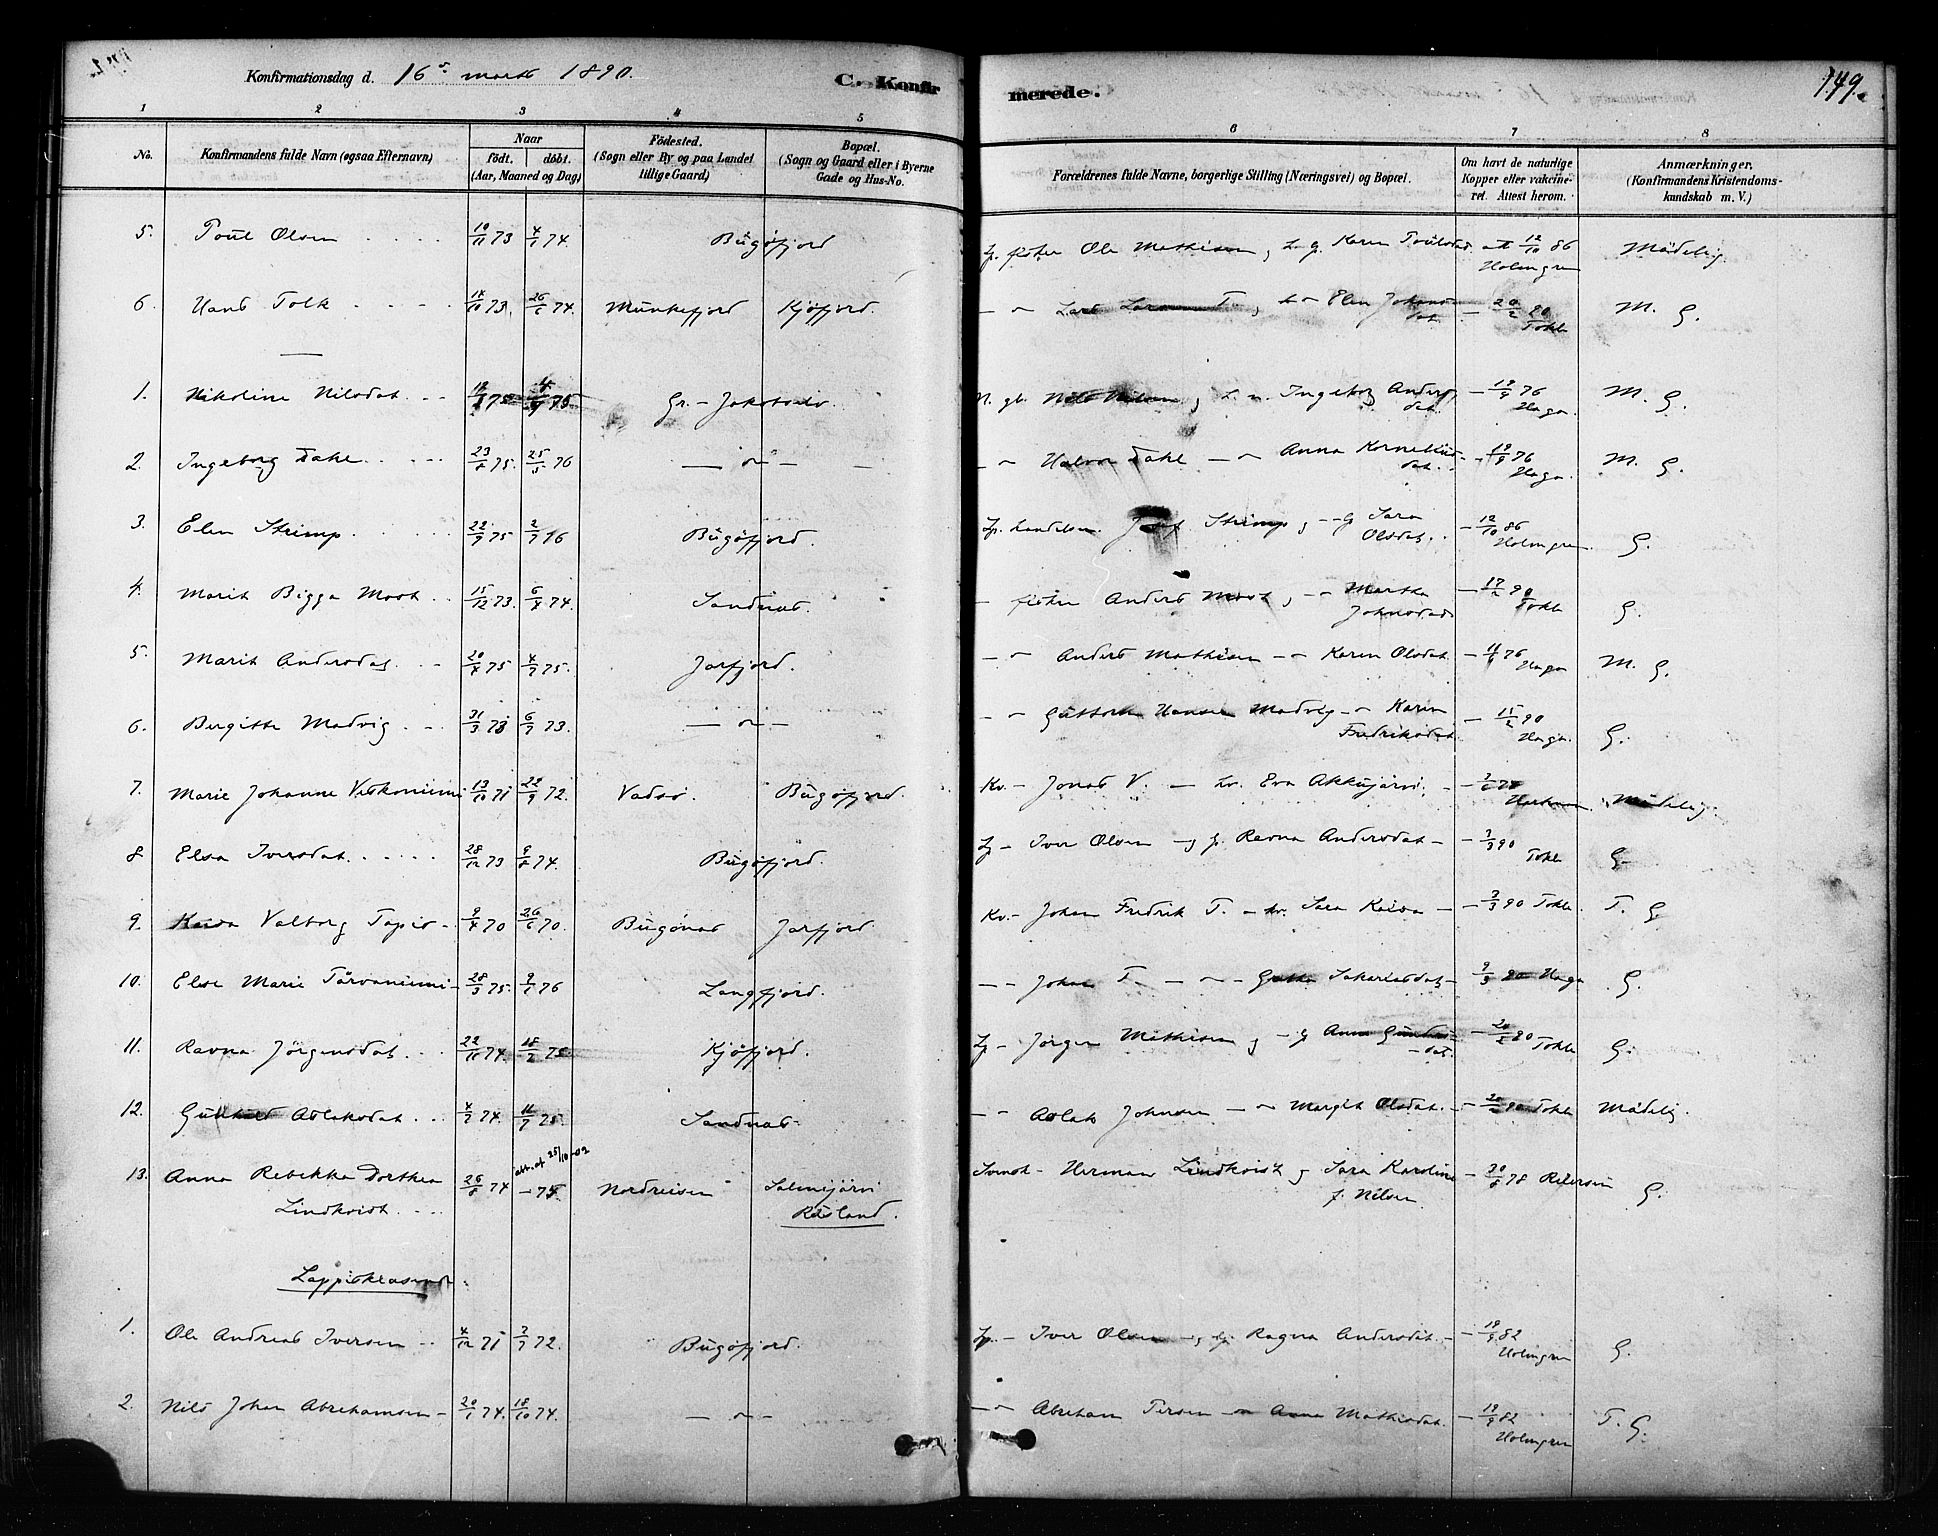 Konfirmationsdag d. 16de marts 1890.
C. Konfir
merede.
149.
1 2 3 4 5 6 7 8
No.
Konfirmandens fulde Navn (ogsaa Efternavn)
Naar
født. døbt.
(Aar, Maaned og Dag)
Fødested.
(Sogn eller By og paa Landet
tillige Gaard)
Bopæl.
(Sogn og Gaard eller i Byerne
Gade og Hus-No.
Forældrenes fulde Navne, borgerlige Stilling (Næringsvei) og Bopæl.
Om havt de naturlige
Kopper eller vakcine-
ret. Attest herom.
Anmærkninger.
(Konfirmandens Kristendoms-
kundskab m. V.)
5. Poul Olsen 10/11 73 4/1 74. Bugøfjord Lp. fisker Ole Mathisen g L. g. Karen Poulsdat att 12/10 86 Holmgren Mådelig
6. Hans Folk 26/6 74. Munkefjord Kjøfjord. Lars F. g Elen Johansdat. 20/2 90 Tokle M. G.
1. Nikoline Nilsdat. 75 75. Gr. Jakobselv. N. gb. Nils Nilsen g Ingeborg Andersdat. 19/9 76 Haga. M. G.
2. Ingeborg Dahl 23/8 75. 25/5 76 Halvor Dahl Anna Korneliusdat. 19/9 76 Haga. M. G.
3. Elen Strimp 22/9 75 2/7 76 Bugøfjord. Lp. handelsm. Strimp g Sara Olsdat. 12/10 86 Holmgren. G.
4. Marit Bigga Moot 15/12 73. 6/4 74. Sandnes. fisker Anders Moot g Martha Johnsdat 17/2 90 Tokle G.
5. Marit Andersdat. 20/4 75 4/7 75. Jarfjord. Anders Mathisen Karen Olsdat. 76 Haga M. G.
6. Birgitte Madvig 31/3 73 6/7 73. Guttorm Hansen Madvig Karen Fredriksdat. 15/2 90 Haga. G.
7. Marie Johanne Viskoniemi 13/10 71 22/9 72. Vadsø. Bugøfjord. Kv. Jonas V. kv. Eva Akkujärvi. Mådelig.
8 Elsa Iversdat. 28/12 73 9/8 74. Bugøfjord. Lp Iver Olsen g Ravna Andersdat 7/3 90 Tokle G.
9. Kaisa Valborg Tapio 9/4 70 26/6 70. Bugønes Jarfjord Kv. Johan Fredrik T. kv. Sara Kaisa 3/3 90 Tokle. T. G.
10. Else Marie Tårvaniemi 28/3 75. 9/1 76 Langfjord. Johan T. Sakariasdat. 9/3 90 Haga G.
11. Ravna Jørgensdat. 22/11 74. 18/2 75 Kjøfjord. Lp Jørgen Mathisen g Anna 20/2 90 Tokle G.
12. Gunhild Aslaksdat. 4/7 74. 11/7 75. Sandnes. Aslak Johnsen Margit Olsdat. 20/2 90 Tokle Mådelig.
att. af 25/10-02
13. Anna Rebekka Dorthea 26/8 74 - 75. Nordreisen Salmijärvi Svensk Herman Lindkvist g Sara Karoline 30/8 78 G.
Lindkvist. Rusland. f. Nilsen
Lappiskeasende
1. Ole Andreas Iversen 4/12 71 7/7 72. Bugøfjord. Lp. Iver Olsen Ragna Andersdat. 19/9 82 Holmgren G.
2. Nils Johan Abrahamsen 20/1 74. 18/10 74. Abraham Persen Anna Mathisdat. 19/9 82 Holmgren T. G.